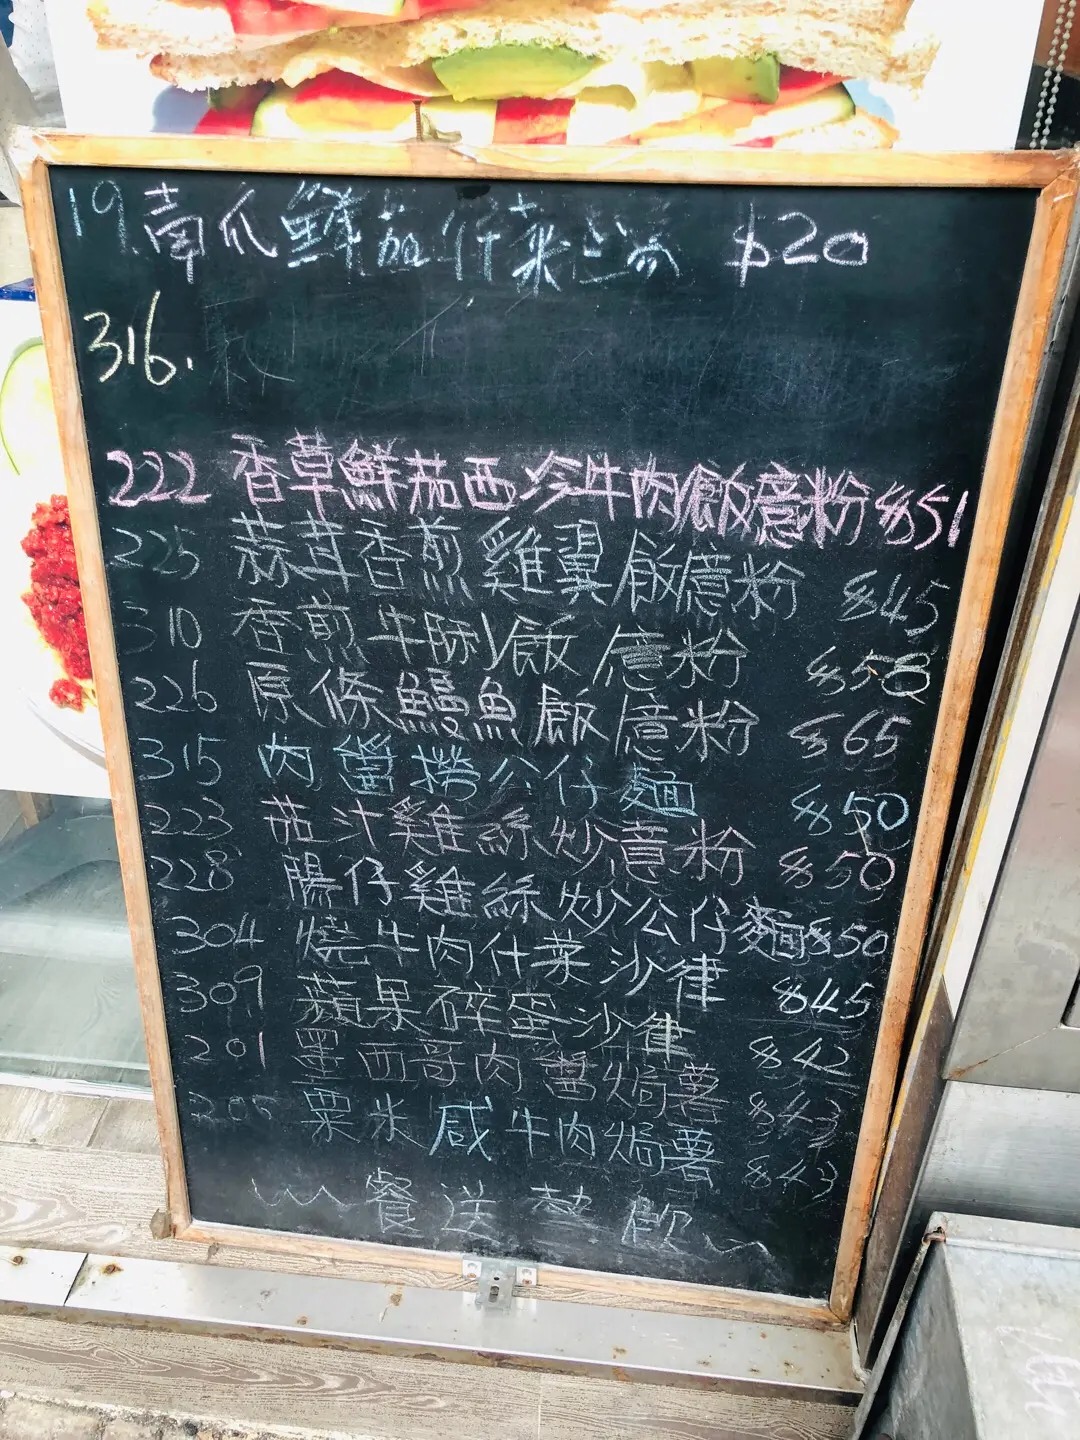 19.南瓜鮮茄什菜忌廉 $20
316.
222 香草鮮茄西冷牛肉飯意粉 $51
225 蒜茸香煎雞翼飯意粉 $45
310 香煎牛脷飯意粉 $50
226 原條鰻魚飯意粉 $65
315 肉醬撈公仔麵 $50
223 茄汁雞絲炒意粉 $50
228 腸仔雞絲炒公仔麵 $50
304 燒牛肉什菜沙律 $45
309 蘋果碎蛋沙律 $42
201 墨西哥肉醬焗薯 $43
205 粟米咸牛肉焗薯 $43
餐送熱飲